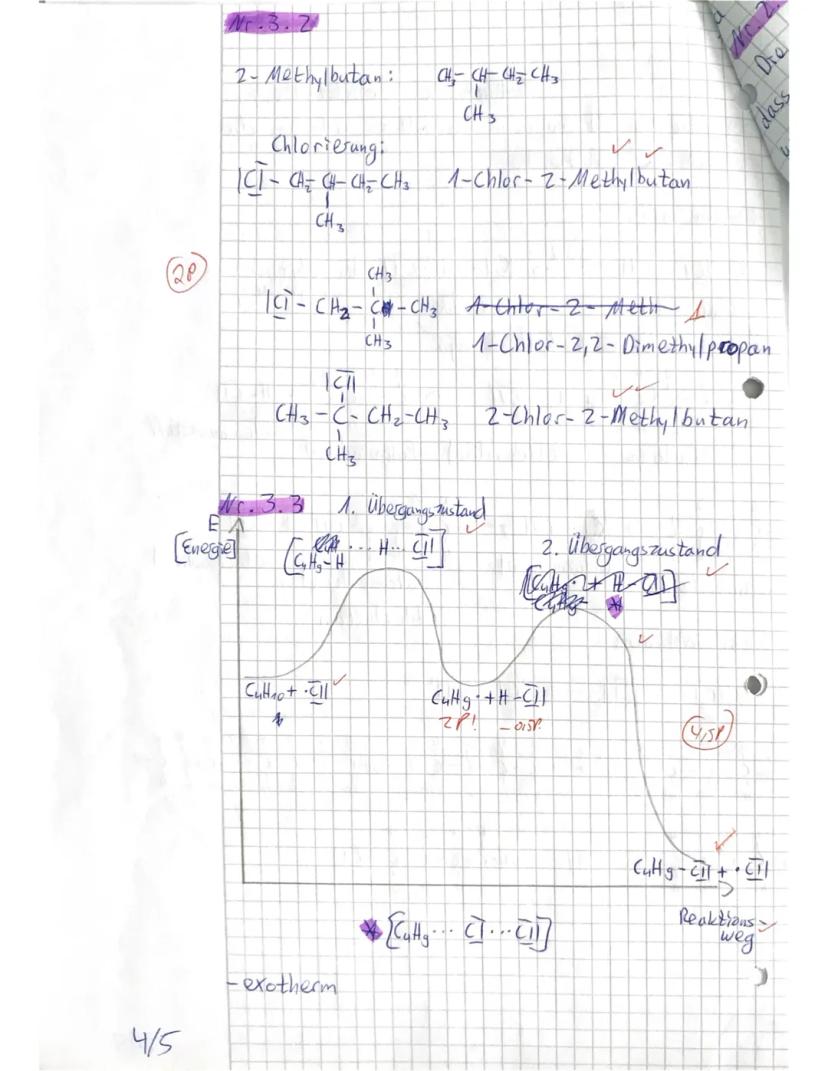 Nr. 3.2
Nr. 2.
Die
dass
2-Methylbutan: CH3-CH-CH2-CH3
CH3
Chlorierung:
|Cl-CH2-CH-CH2-CH3 1-Chlor-2-Methylbutan
CH3
2P
CH3
|Cl-CH2-C-CH3 1-Chlor-2-Meth
CH3 1-Chlor-2,2-Dimethylpropan
|Cl|
CH3-C-CH2-CH3 2-Chlor-2-Methylbutan
CH3
Nr. 3.3 1. Übergangszustand
E
[Energie] [C4H9-H ... H ... Cl|] 2. Übergangszustand
*
C4H10 + ·Cl| C4H9· + H-Cl|
2P! -0,5P.
4,5P
C4H9-Cl| + ·Cl|
Reaktions-
weg
* [C4H9 ... Cl ... Cl|]
-exotherm
4/5